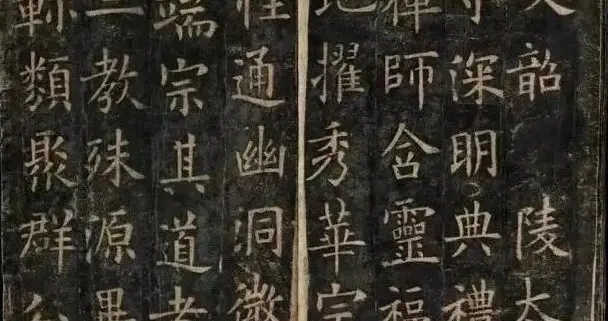 韶陵太
守深明典禮
禪師含靈福
地擢秀華宗
性通幽洞微
端宗其道者
三教殊源異
軫類聚群分